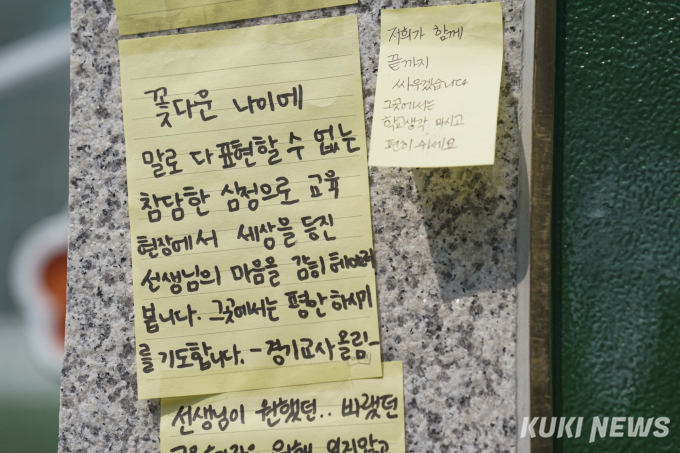 꽃다운 나이에
말로 다 표현할 수 없는
참담한 심정으로 교육
현장에서 세상을 등진
선생님의 마음을 감히 헤아려
봅니다. 그곳에서는 평안하시기
를 기도합니다. -경기교사 올림-
저희가 함께
끝까지
싸우겠습니다
그곳에서는
학교생각 마시고
편히 쉬세요
선생님이 원했던.. 바랬던
KUKI NEWS